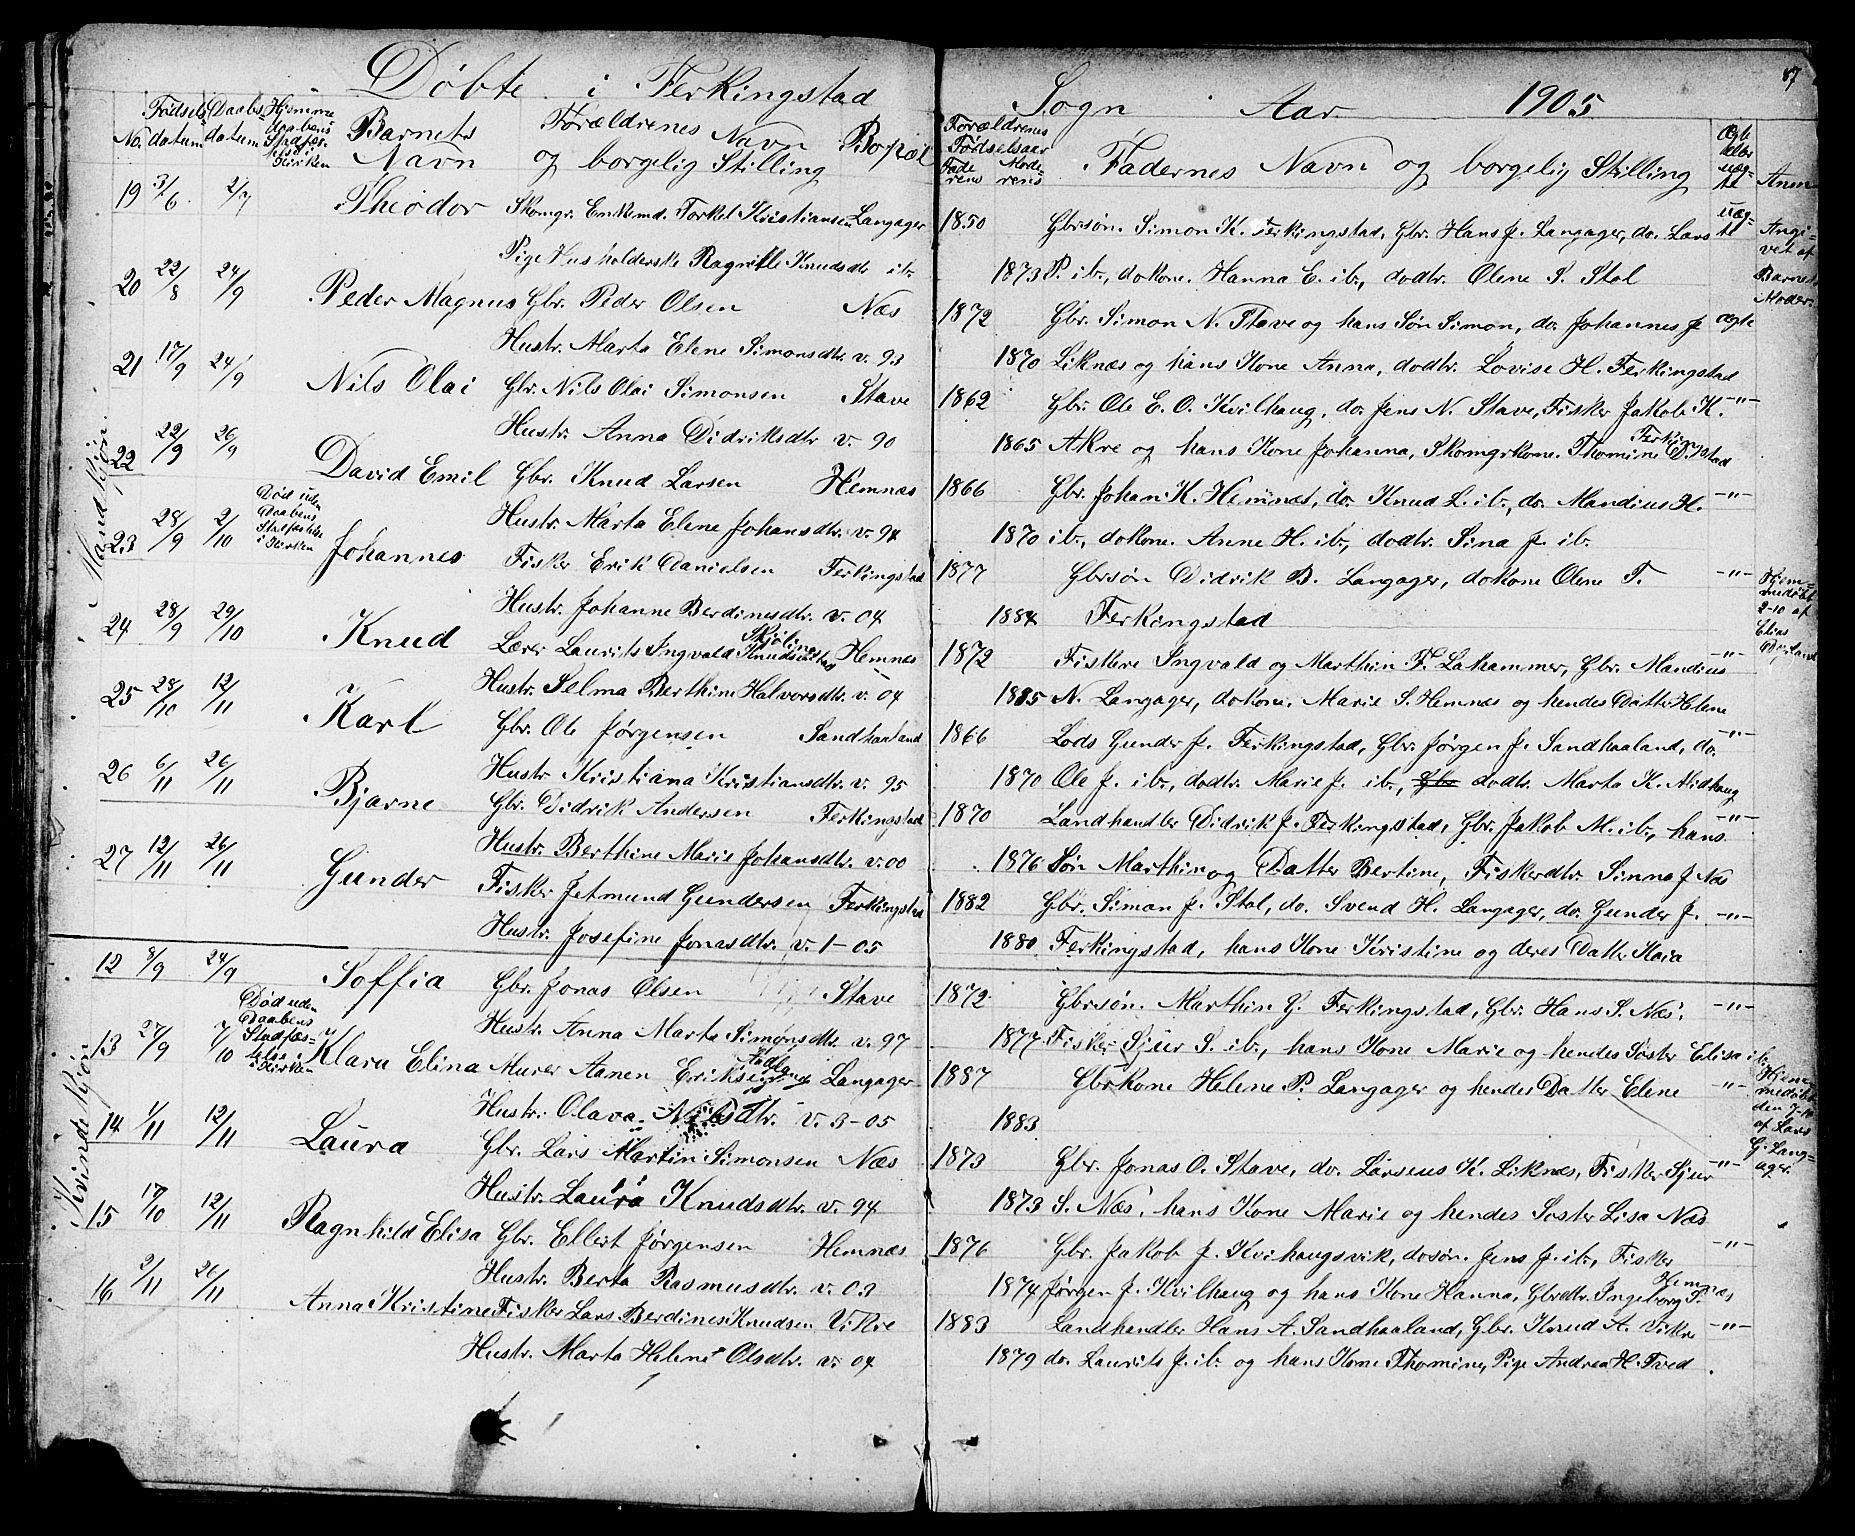 Døbte i Ferkingstad Sogn Aar 1905
87
No. Fødsels datum Daabs datum Hjemme daabens Stadfæstelse i Kirken Barnets Navn Forældrenes Navn og borgelig Stilling Bopæl
Forældrenes Fødselsaar Faderens Moderens Faddernes Navn og borgelig Stilling Ægte eller uægte Anm
Mandkjøn.
19 3/6 2/7 Theodor Skomgr. Enkemd. Torkel Kristiansen Langager 1850 Gbrsøn. Simon K. Ferkingstad, Gbr. Hans J. Langager, do. Lars uægte Angivet af Barnets Moder.
Pige Husholderske Ragnille Knudsdtr ib. 1873 P. ib., dokone. Hanna E. ib., dodtr. Olene S. Stol
20 22/8 24/9 Peder Magnus Gbr. Peder Olsen Næs 1872 Gbr. Simon N. Stave og hans Søn Simon, do. Johannes J. ægte
Hustr. Marta Elene Simonsdtr. v. 93 1870 Liknæs og hans Kone Anna, dodtr. Lovise H. Ferkingstad
21 17/9 24/9 Nils Olai Gbr. Nils Olai Simonsen Stave 1862 Gbr. Ole E. O. Kvilhaug, do. Jens N. Stave, Fisker Jakob K. -"-
Hustr. Anna Didriksdtr v. 90 1865 Akre og hans Kone Johanna, Skomgrkone. Thomine D. Ferkingstad
22 22/9 26/9 David Emil Gbr. Knud Larsen Hemnæs 1866 Gbr. Johan K. Hemnæs, do. Knud L. ib., do. Mandius H. -"-
Hustr. Marta Elene Johansdtr. v. 94 1870 ib., dokone. Anne H. ib., dodtr. Sina J. ib.
23 28/9 2/10 Død uden Daabens Stadfæstelse i Kirken Johannes Fisker Erik Danielsen Ferkingstad 1877 Gbrsøn Didrik B. Langager, dokone Olene T. -"- Hjemmedøbt 2-10 af Elias
Hustr. Johanne Berdinusdtr v. 04 1884 Ferkingstad
24 28/9 29/10 Knud Lærer Laurits Ingvald Knudsen Hemnæs 1872 Fiskere Ingvald og Marthin F. Lahammer, Gbr. Mandius -"-
Hustr. Selma Berthine Halvorsdtr. v. 04 1885 N. Langager, dokone. Marie S. Hemnæs og hendes Datter Helene
25 28/10 12/11 Karl Gbr. Ole Jørgensen Sandhaaland 1866 Lods Gunder J. Ferkingstad, Gbr. Jørgen J. Sandhaaland, do. -"-
Hustr. Kristiana Kristiansdtr. v. 95 1870 Ole J. ib., dodtr. Marie J. ib., Gbr dodtr. Marta K. Midhaug
26 6/11 26/11 Bjarne Gbr. Didrik Andersen Ferkingstad 1870 Landhandler Didrik J. Ferkingstad, Gbr. Jakob M. ib., hans -"-
Hustr. Berthine Marie Johansdtr. v. 00 1876 Søn Marthin og Datter Bertine, Fiskerdtr. Sinna J. Næs
27 12/11 26/11 Gunder Fisker Jetmund Gundersen Ferkingstad 1882 Gbr. Simon J. Stol, do. Svend H. Langager, do. Gunder J. -"-
Hustr. Josefine Jonasdtr. v. 1-05 1880 Ferkingstad, hans Kone Kristine og deres Datter Kaia
Kvindekjøn.
12 8/9 24/9 Soffia Gbr. Jonas Olsen Stave 1872 Gbrsøn. Marthin G. Ferkingstad, Gbr. Hans S. Næs. -"-
Hustr. Anna Marta Simonsdtr. v. 97 1877 Fisker Sjur S. ib., hans Kone Marie og hendes Søster Elisa ib.
13 27/9 7/10 Død uden Daabens Stadfæstelse i Kirken Klara Elina Murer Aanen Eriksen Langager 1887 Gbrkone Helene P. Langager og hendes Datter Elene -"- Hjemmedøbt den 7-10 af Lars G. Langager.
Hustr. Olava Nilsdtr. v. 3-05 1883
14 1/11 12/11 Laura Gbr. Lars Martin Simonsen Næs 1873 Gbr. Jonas O. Stave, do. Larseus K. Liknæs, Fisker Sjur -"-
Hustr. Laura Knudsdtr. v. 94 1873 S. Næs, hans Kone Marie og hendes Søster Lisa Næs
15 17/10 12/11 Ragnhild Elisa Gbr. Ellert Jørgensen Hemnæs 1876 Gbr. Jakob J. Kvilhaugsvik, dosøn. Jens J. ib., Fisker -"-
Hustr. Berta Rasmusdtr. v. 03 1874 Jørgen J. Kvilhaug og hans Kone Hanna, Gbrdtr. Ingeborg T. Hemnæs
16 2/11 26/11 Anna Kristine Fisker Lars Berdines Knudsen Vikre 1883 Landhandler Hans A. Sandhaaland, Gbr. Knud A. Vikre -"-
Hustr. Marta Helene Olsdtr. v. 04 1879 do. Laurits J. ib. og hans Kone Thomine, Pige Andrea H. Tved